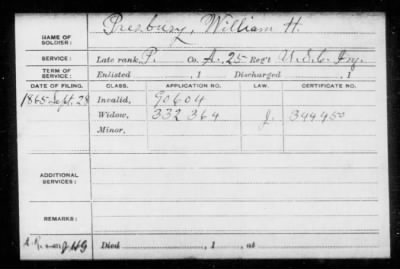 NAME OF SOLDIER: Presbury, William H.
SERVICE: Late rank, P. Co. A. 25 Reg't U.S.C. Inf.
TERM OF SERVICE: Enlisted , 1 Discharged , 1
DATE OF FILING. CLASS. APPLICATION NO. LAW. CERTIFICATE NO.
1865 Sept. 28 Invalid, 90604
Widow, 332364 J. 344450
Minor,
ADDITIONAL SERVICES:
REMARKS:
Died , 1 , at